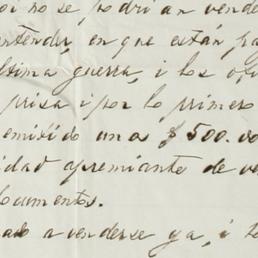 no se podrian vende
entender, en que están pa
ltima guerra, i los of
prisa i por lo primero
emitido unos $500.00
idad apremiante de v
locumentos.
ado a venderse ya, i t